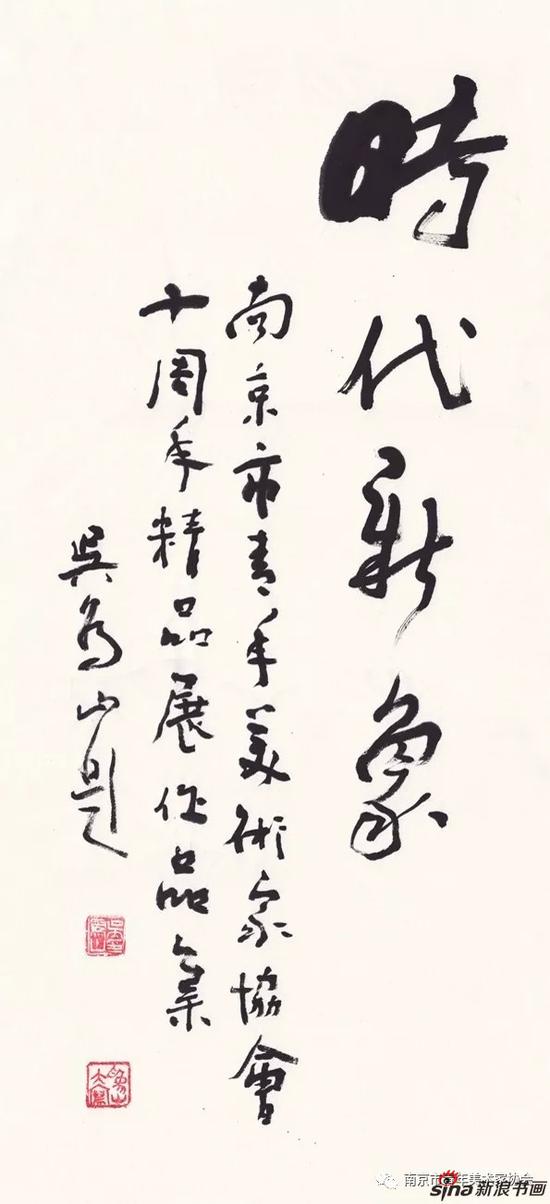 時代新象
南京市青年美術家協會
十周年精品展作品集
吳為山題
南京市青年美术家协会
sina新浪书画